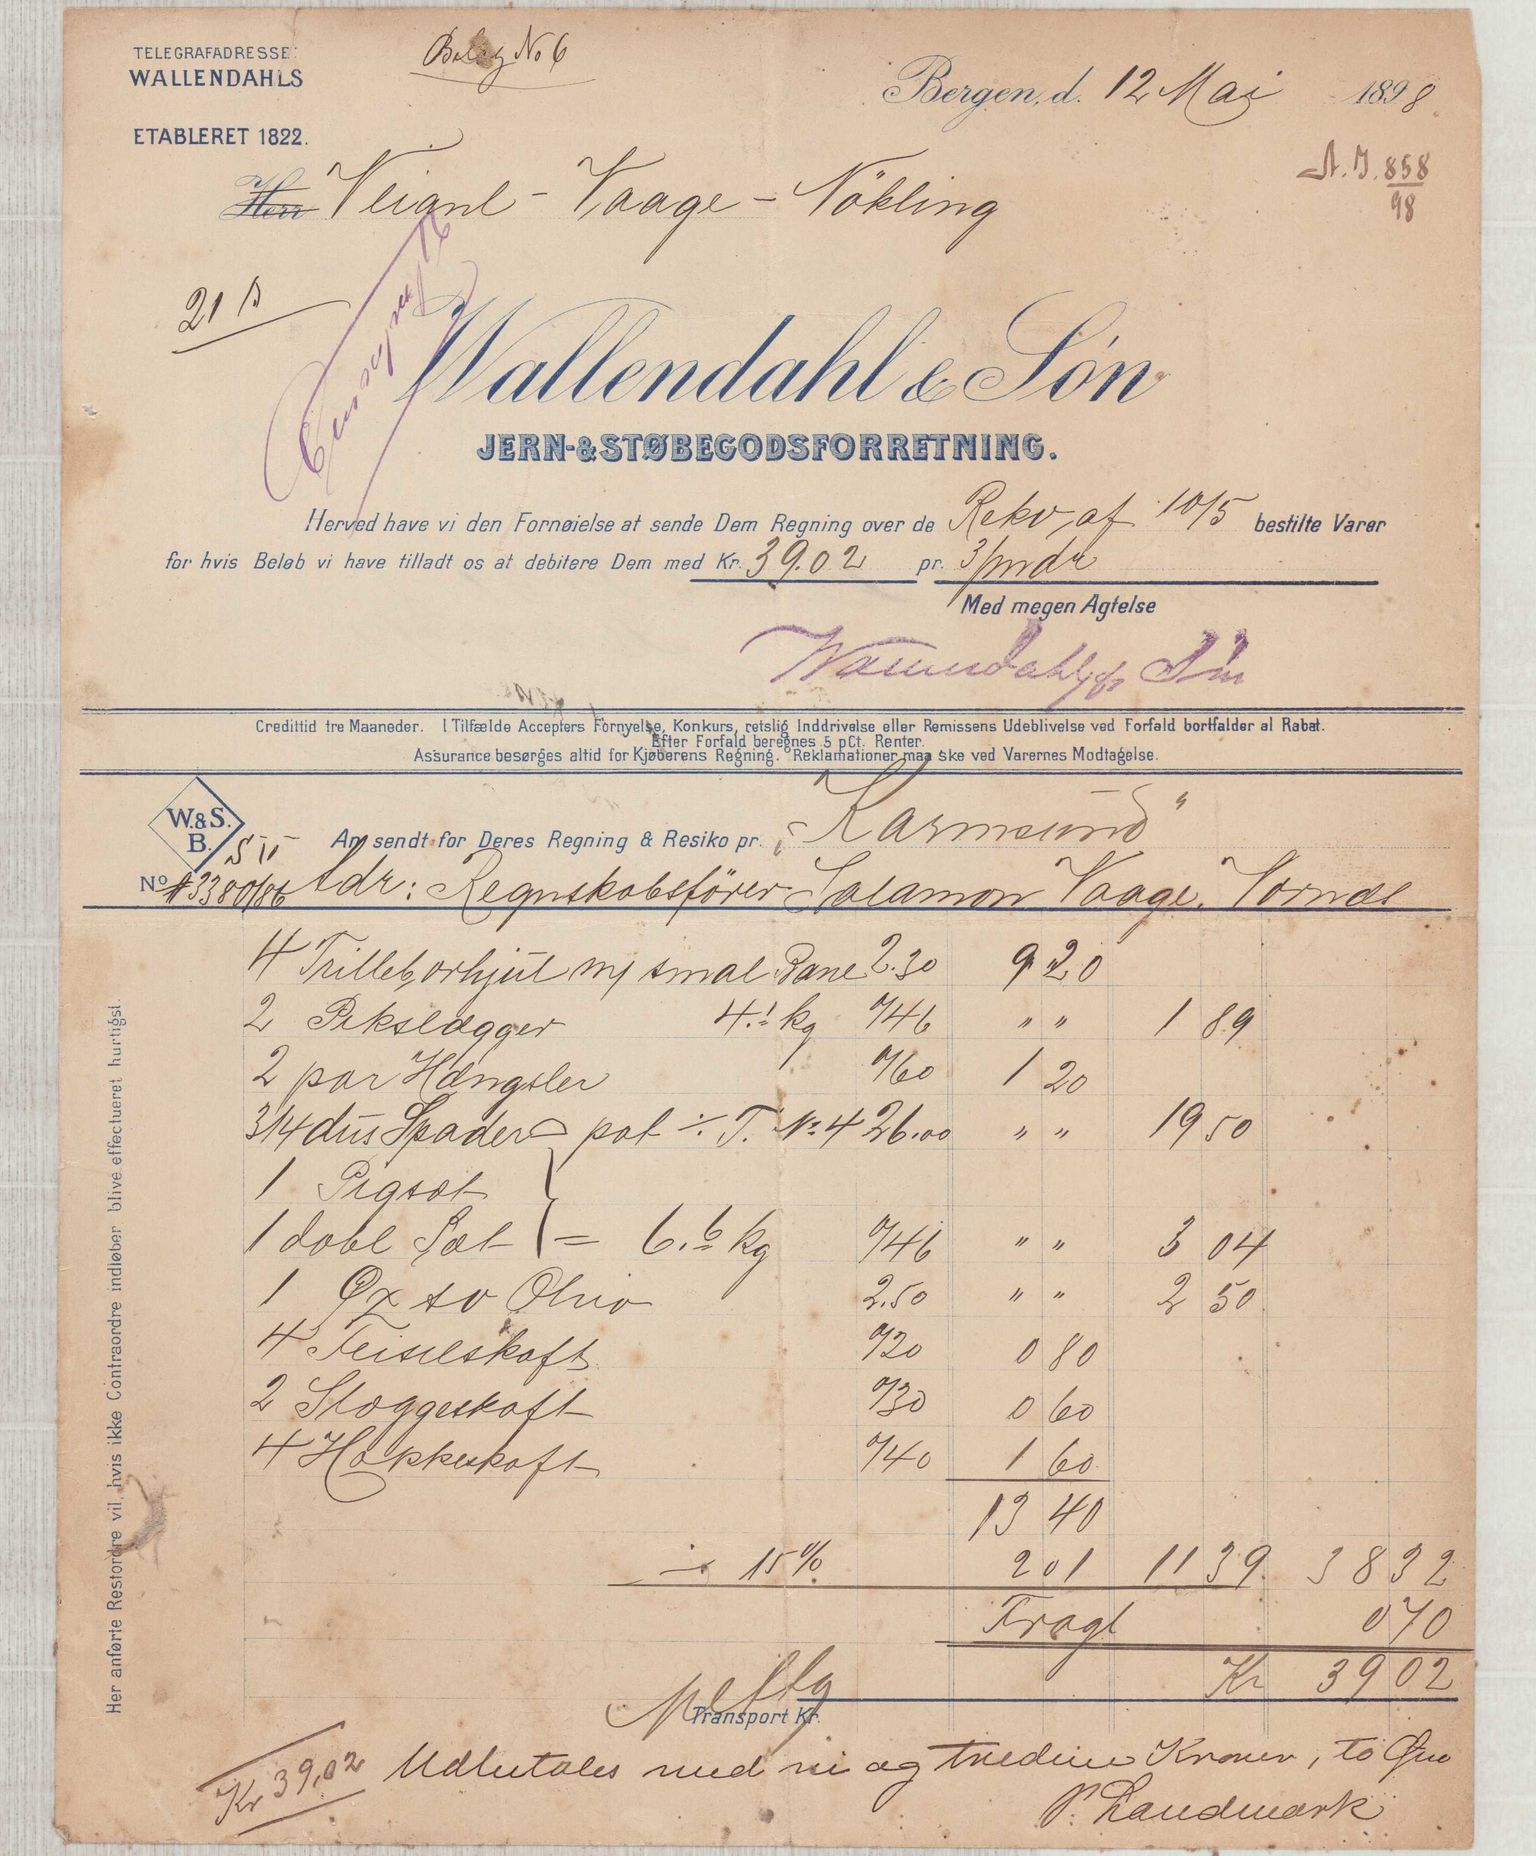 TELEGRAFADRESSE:
WALLENDAHLS
Bilag No 6
Bergen, d. 12 Mai 1898
ETABLERET 1822.
A. J. 858
98
Herr Veianl - Vaage - Nökling
21
Wallendahl & Søn
JERN- & STØBEGODSFORRETNING.
Herved have vi den Fornøielse at sende Dem Regning over de Rekv. af 10/5 bestilte Varer
for hvis Beløb vi have tilladt os at debitere Dem med Kr. 39.02 pr. 3/mdr
Med megen Agtelse
Wallendahl & Søn
Credittid tre Maaneder. I Tilfælde Accepters Fornyelse, Konkurs, retslig Inddrivelse eller Remissens Udeblivelse ved Forfald bortfalder al Rabat.
Efter Forfald beregnes 5 pCt. Renter.
Assurance besørges altid for Kjøberens Regning. Reklamationer maa ske ved Varernes Modtagelse.
W. & S.
B.
An sendt for Deres Regning & Resiko pr. "Karmsund"
No 3380/86 Adr: Regnskabsfører Salamon Vaage.
4 Trillebørhjul m/ smal Bane 2.30 9 20
2 Pikslægger 4.1 kg "/46 " " 1 89
2 par Hængsler "/60 1 20
3/4 dus Spader pol ÷ T. No 4 26.00 " " 19 50
1 Pigsæt
1 dobl Sæt = 6.6 kg "/46 " " 3 04
1 Øx so Ohio 2.50 " " 2 50
4 Feiselskaft "/20 0 80
2 Slæggeskaft "/30 0 60
4 Hakkeskaft "/40 1 60
13 40
÷ 15% 2 01 11 39 38 32
Fragt 0 70
Kr 39 02
Transport Kr.
Her anførte Restordre vil, hvis ikke Contraordre indløber blive effectueret hurtigst.
Kr 39,02 Udbetales med ni og tredive Kroner, to Øre
P. Landmark